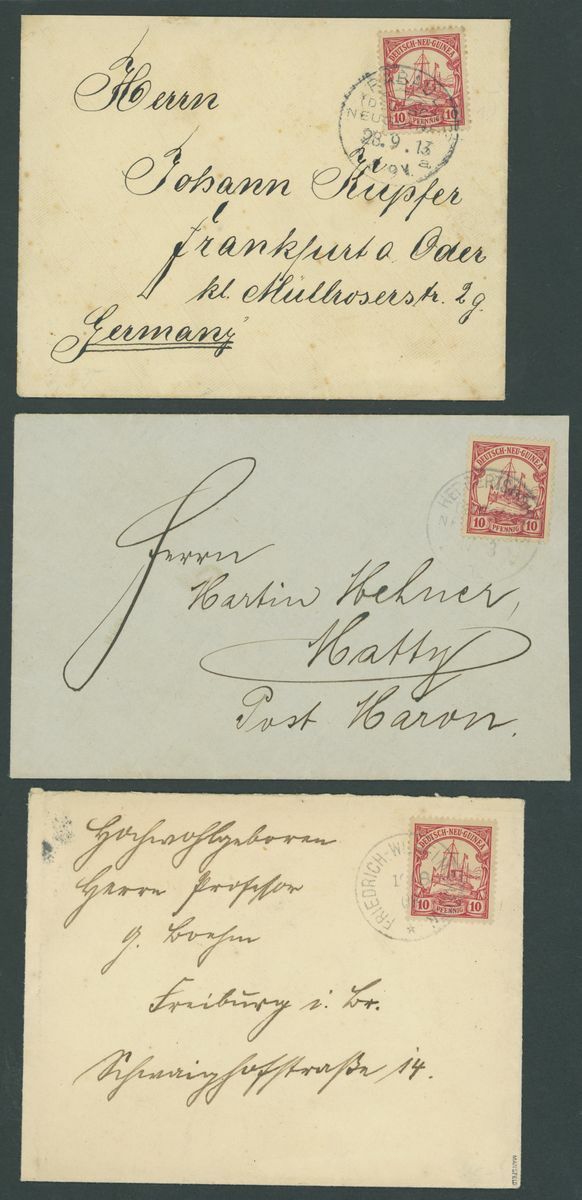 DEUTSCH-NEU-GUINEA
10 PFENNIG 10
28.9.13
a
Herrn
Johann Kupfer
Frankfurt a Oder
kl. Müllroserstr. 2g.
Germany
DEUTSCH-NEU-GUINEA
10 PFENNIG 10
Herrn
Martin Hehner,
Matty
Post Maron.
DEUTSCH-NEU-GUINEA
10 PFENNIG 10
FRIEDRICH-WI
Hochwohlgeboren
Herrn Professor
G. Boehm
Freiburg i. Br.
Schwaighofstraße 14.
MANSFELD